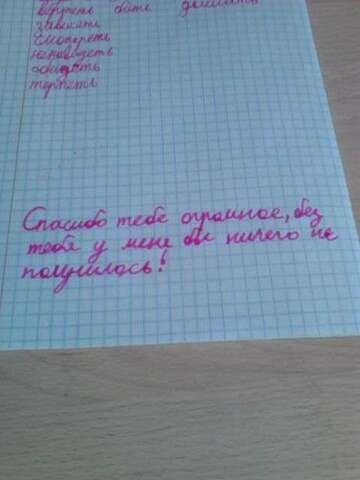 вертеть быть
зависеть
смотреть
ненавидеть
обидеть
терпеть
Спасибо тебе огромное, без
тебя у меня бы ничего не
получилось!